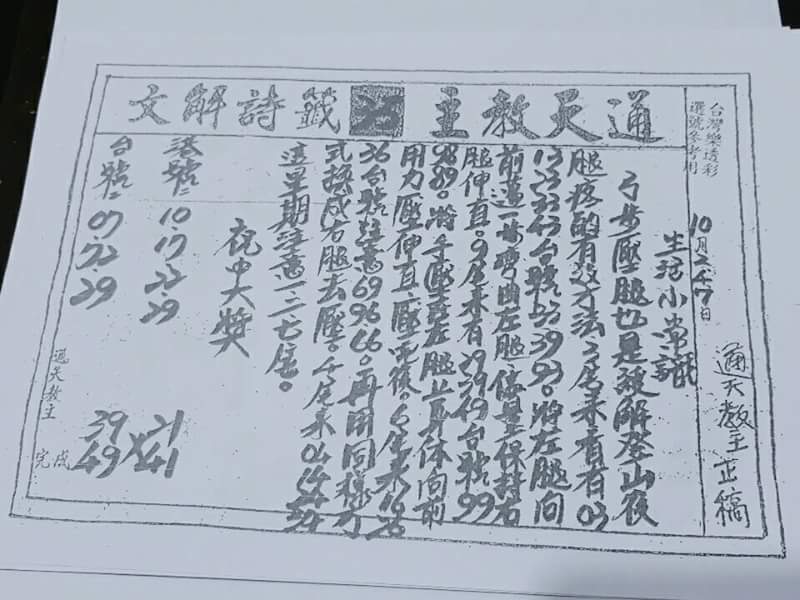 通天教主 籤詩解文
台灣樂透彩
選號參考用
通天教主正稿
生活小常識
弓步壓腿也是緩解登山後
腿疼的有效方法3尾來有有03
13233343台號 3993。將左腿向
前邁一步彎曲左腿,儘量保持右
腿伸直。9尾來有293949台號99
9889。將手壓在左腿上身体向前
用力壓伸直一壓完後。6尾來1626
36台號注意699666。再用同樣方
式換成右腿去壓。4尾來04
這星期注意一二七尾。
祝中大獎
港號: 10.17.22.29
台號: 07.22.29
39 21
X
49 41
通天教主
完成